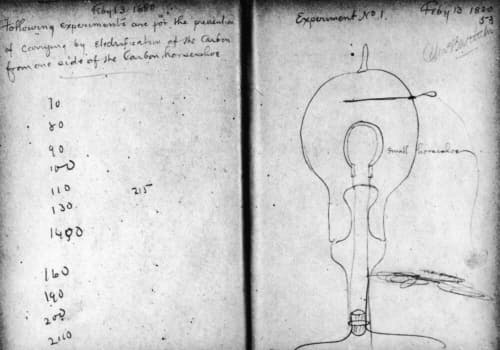 Feby 13 1880
Following experiments are for the prevention
of carrying by Electrification of the Carbon
from one side of the Carbon horseshoe
70
80
90
100
110
215
130
1400
160
190
200
2110
Experiment No. 1.
Feby 13 1880
53
small horseshoe